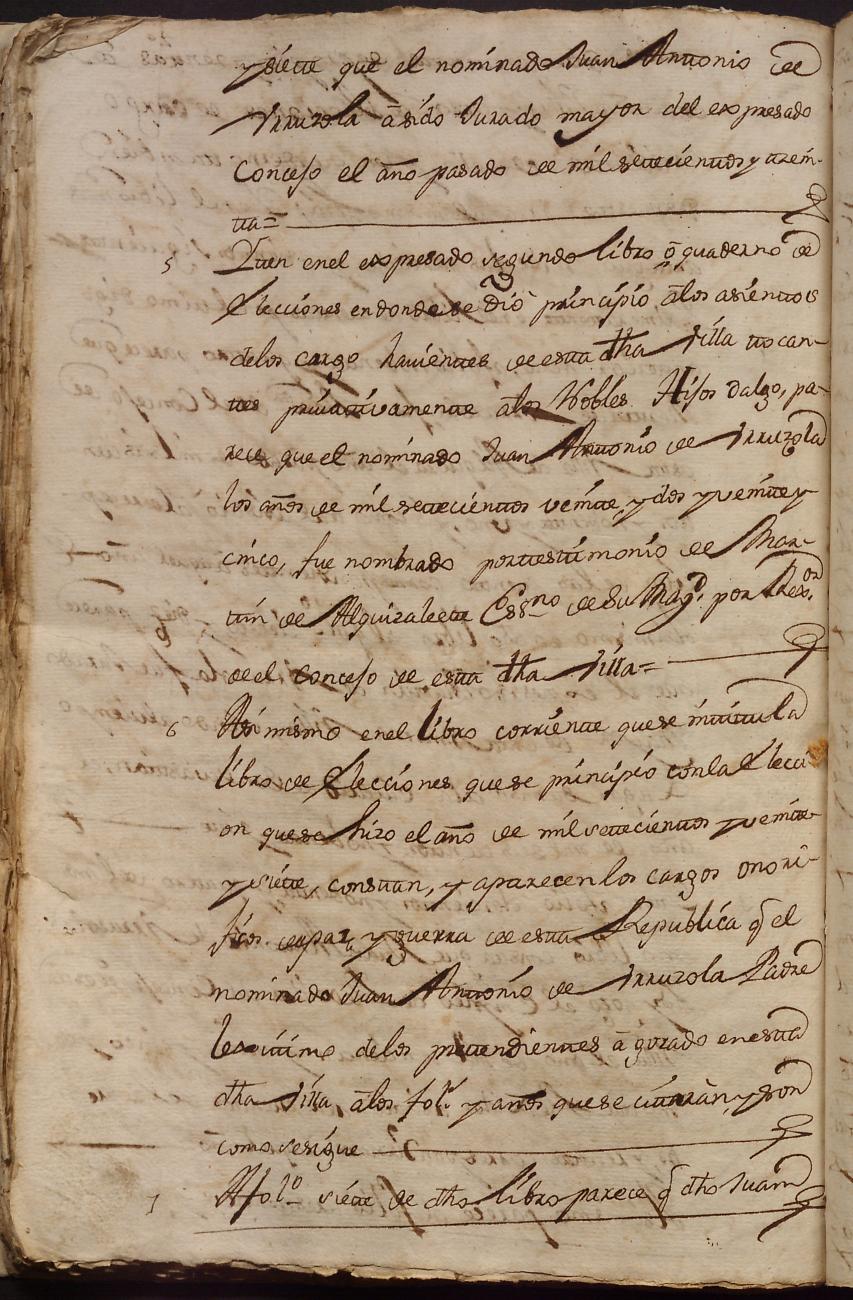 y siette que el nominado Juan Anttonio de
Yrruzola ā sido Jurado mayor del expresado
Concejo el año pasado de mil settecienttos y trein-
tta=
5 Ytten en el expresado segundo libro ō quaderno de
Elecciones en donde se dió principio a los asienttos
de los cargo havienttes de esta dha Villa ttocan-
ttes privattivamentte a los Nobles Hijos dalgo, pa-
rece que el nominado Juan Anttonio de Yrruzola
los años de mil settecienttos veintte y dos y veintte y
cinco, fue nombrado por ttesttimonio de Mar-
ttin de Alquizalette Essno de Su Magd. por Rexor
de el Concejo de esta dha Villa=
6 Asi mismo en el libro corrientte que se inttittula
libro de Elecciones que se principio con la Elecci-
on que se hizo el año de mil settecienttos y veintte
y siette, consttan, y aparecen los cargos onori-
ficos de paz, y guerra de estta Republica q el
nominado Juan Anttonio de Yrruzola Padre
lexittimo de los prettendienttes ā gozado en estta
dha Villa, a los fols. y años que se cittaràn, y son
como se sigue
1 A folo siette de dho libro parece q dho Juan